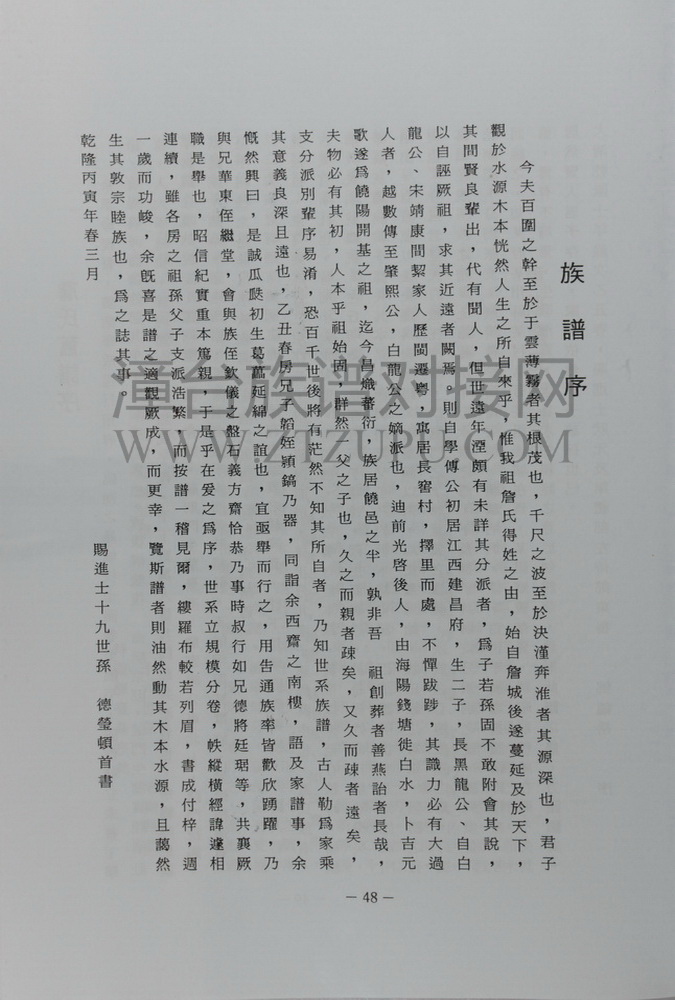 族譜序
今夫百圍之幹至於于雲薄霧者其根茂也，千尺之波至於決漌奔淮者其源深也，君子
觀於水源木本恍然人生之所自來乎，惟我祖詹氏得姓之由，始自詹城後遂蔓延及於天下，
其間賢良輩出，代有聞人，但世遠年湮頗有未詳其分派者，爲子若孫固不敢附會其說，
以自誣厥祖，求其近遠者闕焉。則自學傳公初居江西建昌府，生二子，長黑龍公、自白
龍公、宋靖康間絜家人歷閩遷粵，寓居長窖村，擇里而處，不憚跋踄，其識力必有大過
人者，越數傳至肇熙公，白龍公之嫡派也，迪前光啓後人，由海陽錢塘徙白水，卜吉元
歌遂爲饒陽開基之祖，迄今昌熾蕃衍，族居饒邑之半，孰非吾　祖創葬者善燕詒者長哉，
夫物必有其初，人本乎祖始固，群然一父之子也，久之而親者疎矣，又久而疎者遠矣，
支分派別輩序易淆，恐百千世後將有茫然不知其所自者，乃知世系族譜，古人勒爲家乘
其意義良深且遠也，乙丑春房兄子韜姪穎鎬乃器，同詣余西齋之南樓，語及家譜事，余
慨然興曰，是誠瓜瓞初生葛藟延綿之誼也，宜亟舉而行之，用告通族率皆歡欣踴躍，乃
與兄華東侄繼堂，會與族侄欽儀之盤石義方齋恰恭乃事時叔行如兄德將廷珺等，共襄厥
職是舉也，昭信紀實重本篤親，于是乎在爰之爲序，世系立規模分卷，帙縱橫經諱遽相
連續，雖各房之祖孫父子支派浩繁，而按譜一稽見爾，縷羅布較若列眉，書成付梓，週
一歲而功峻，余旣喜是譜之適觀厥成，而更幸，覽斯譜者則油然動其木本水源，且藹然
生其敦宗睦族也，爲之誌其事。
賜進士十九世孫　德瑩頓首書
乾隆丙寅年春三月
漳台族谱对接网
WWW.ZTZUPU.COM
— 48 —